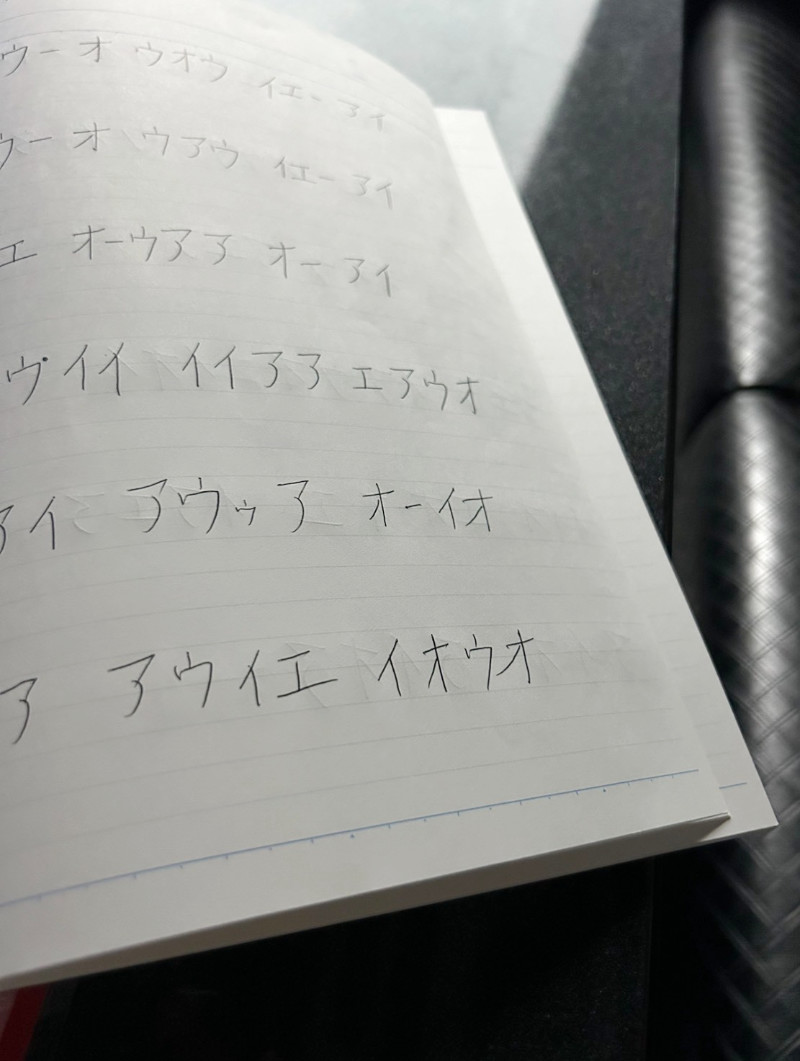 ウー オ ウオウ イエー アイ
ウー オ ウアウ イエー アイ
エ オーウアア オー アイ
ヴ イイ イイアア エアウオ
アイ アウゥア オーイオ
ア アウイエ イオウオ